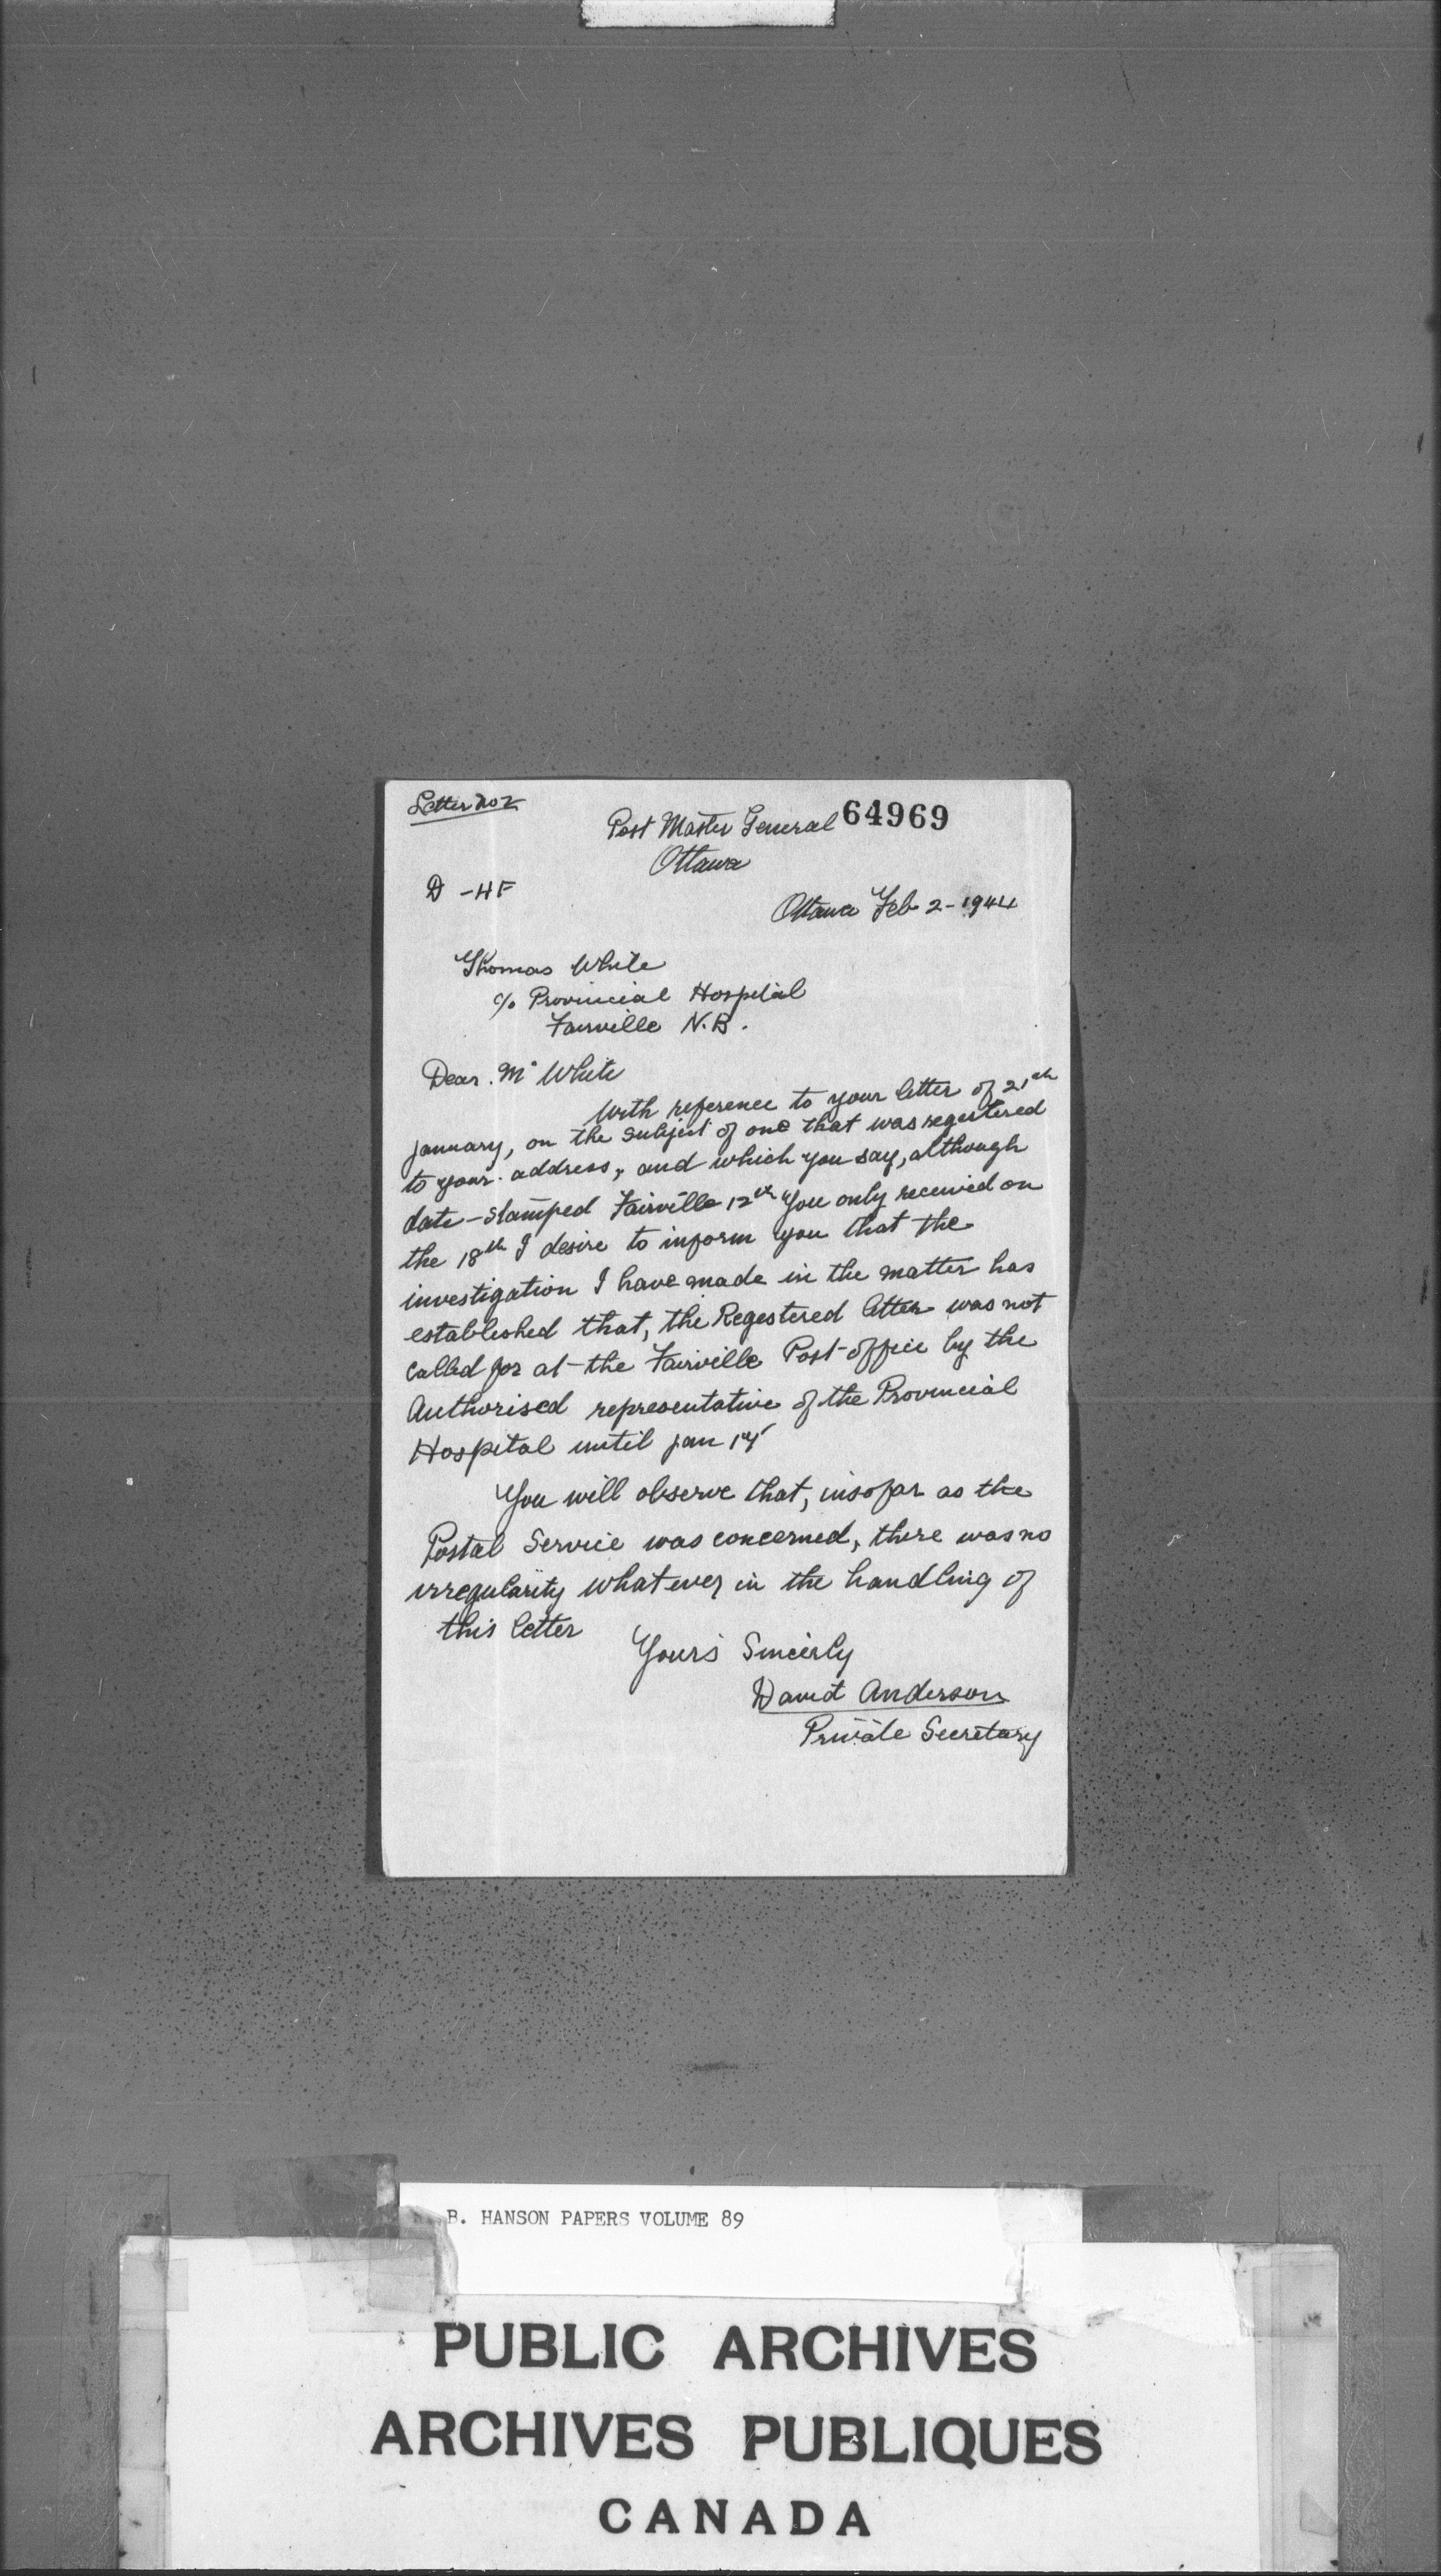 Letter no 2
Post Master General 64969
Ottawa
D - HF
Ottawa Feb 2 - 1944
Thomas White
c/o Provincial Hospital
Fairville N.B.
Dear. Mr White
With reference to your letter of 21th
january, on the subject of one that was regestered
to your address, and which you say, although
date-stamped Fairville 12th you only received on
the 18th I desire to inform you that the
investigation I have made in the matter has
established that, the Regestered letter was not
called for at the Fairville Post-office by the
Authorised representative of the Provincial
Hospital until jan
You will observe that, insofar as the
Postal Service was concerned, there was no
irregularity whatever in the handling of
this letter
Your's Sincerly
David Anderson
Private Secretary
B. HANSON PAPERS VOLUME 89
PUBLIC ARCHIVES
ARCHIVES PUBLIQUES
CANADA